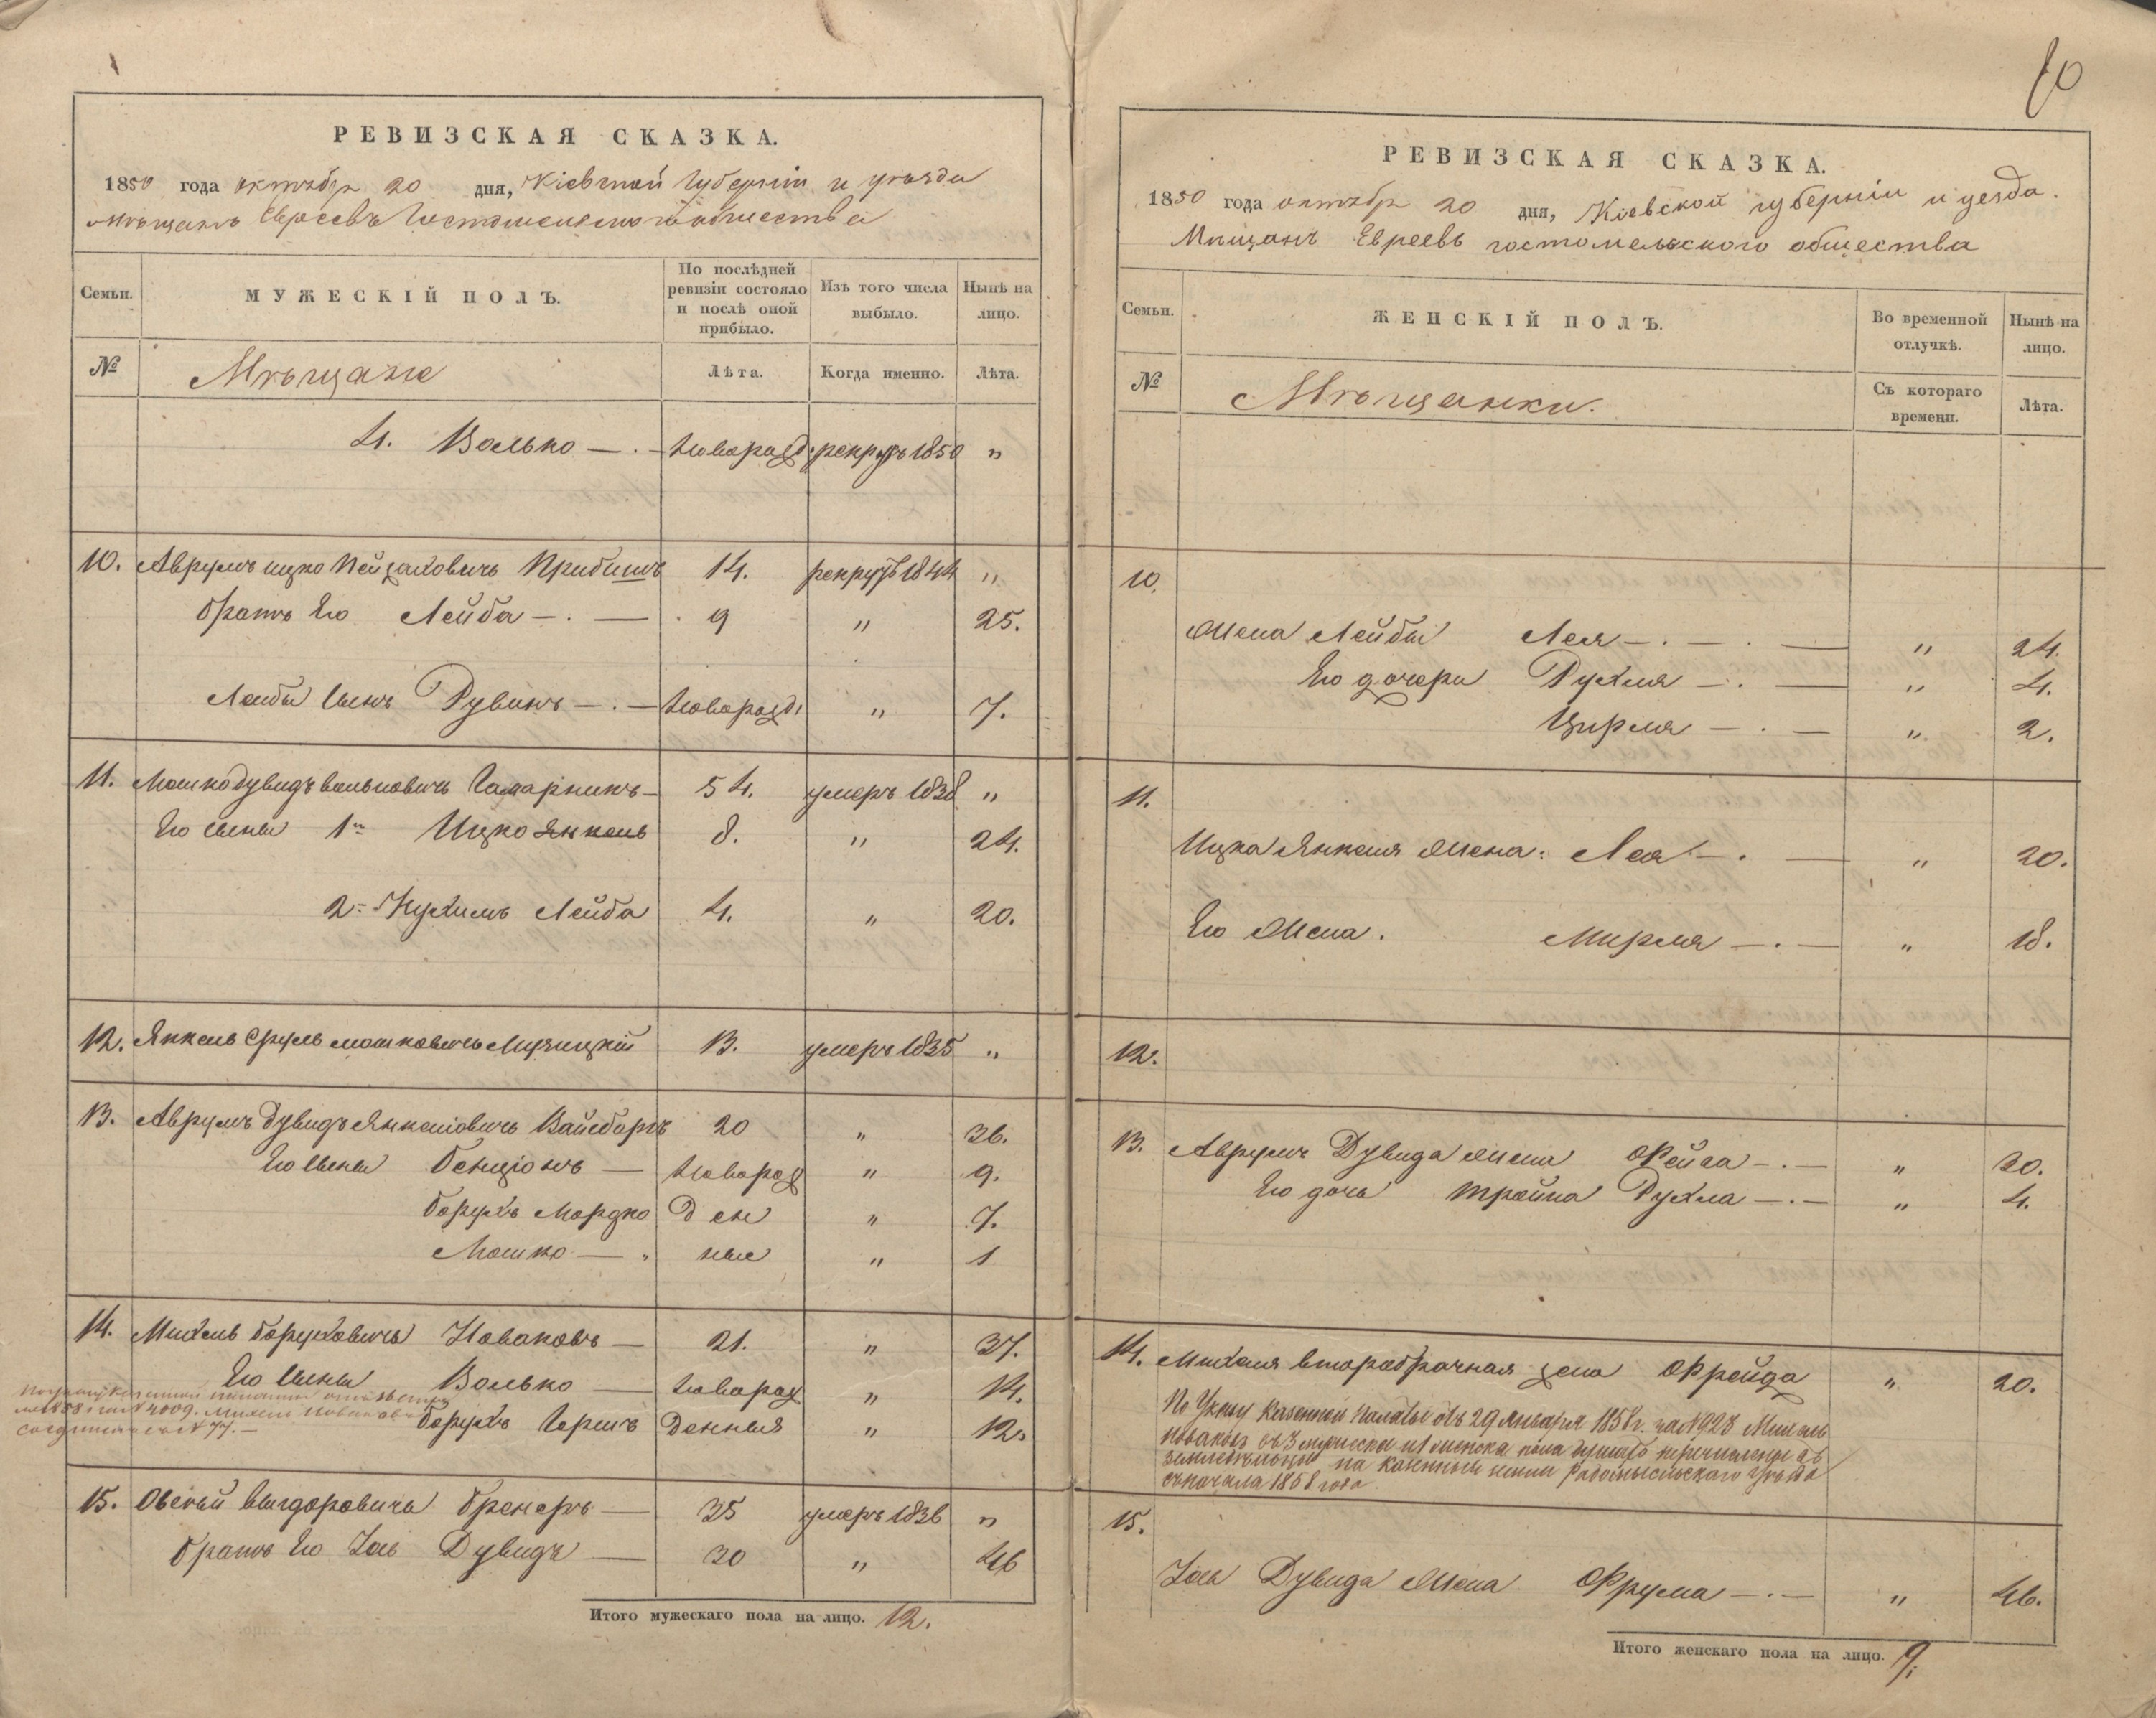 10
РЕВИЗСКАЯ СКАЗКА.
1850 года октября 20 дня, Кіевской Губерніи и уѣзда
мѣщанъ Евреевъ Гостомельского общества
Семьи.
МУЖЕСКІЙ ПОЛЪ.
По послѣдней ревизіи состояло и послѣ оной прибыло.
Изъ того числа выбыло.
Нынѣ на лицо.
№
Мѣщане
Лѣта.
Когда именно.
Лѣта.
4. Волько — . — новорожд: рекрутъ 1850 "
10. Аврумъ ицко Пейзаховичъ 14. рекрутъ 1844 "
братъ Его Лейба — . — 9 " 25.
Лейбы сынъ Рувинъ — . — новорожд: " 7.
11. Мошко дувидъ вольковичъ 54. умеръ 1838 "
Его сыны 1й Ицко Янкель 8. " 24.
2й Нухимъ Лейба 4. " 20.
12. Янкель Сруль мошковичъ 13. умеръ 1835 "
13. Аврумъ Дувидъ Янкелiовичъ 20 " 36.
Его сыны Бенціонъ — новорож " 9.
Борухъ Мордко ден " 7.
Мошко — " ные " 1
14. Михель Боруховичъ Новаковъ — 21. " 37.
Его сыны Волько — новорож " 14.
Борухъ Гершъ денныя " 12.
15. Овсей выгдоровичъ — 35 умеръ 1836 "
братъ Его Дувидъ — 30 " 46
Итого мужескаго пола на лицо. 12.
РЕВИЗСКАЯ СКАЗКА.
1850 года октября 20 дня, Кіевской губерніи и уезда.
Мещанъ Евреевъ гостомельского общества
Семьи.
ЖЕНСКІЙ ПОЛЪ.
Во временной отлучкѣ.
Нынѣ на лицо.
№
Мѣщанки.
Съ котораго времени.
Лѣта.
10.
Жена Лейбы Лея — . — " 24.
Его дочери Рухля — . — " 4.
Цирля — . — " 2.
11.
Ицка Янкеля жена: Лея — . — " 20.
Его жена. Мирля — . — " 18.
12.
13. Аврума Дувида жена Фейга — . — " 30.
Его дочь Тройна Рухля — . — " 4.
14. Михеля второбрачная жена Фрейда " 20.
По Указу Казенной Палаты отъ 29 Января 1858 г. за № 928 Михель
Новаковъ съ 3 мужеска и 1 женска пола перечислены въ
земледѣльцы на Казенныя земли Радомысльскаго Уѣзда
съ начала 1858 года.
15.
Дувида жена Фрума — . — " 46.
Итого женскаго пола на лицо. 9.